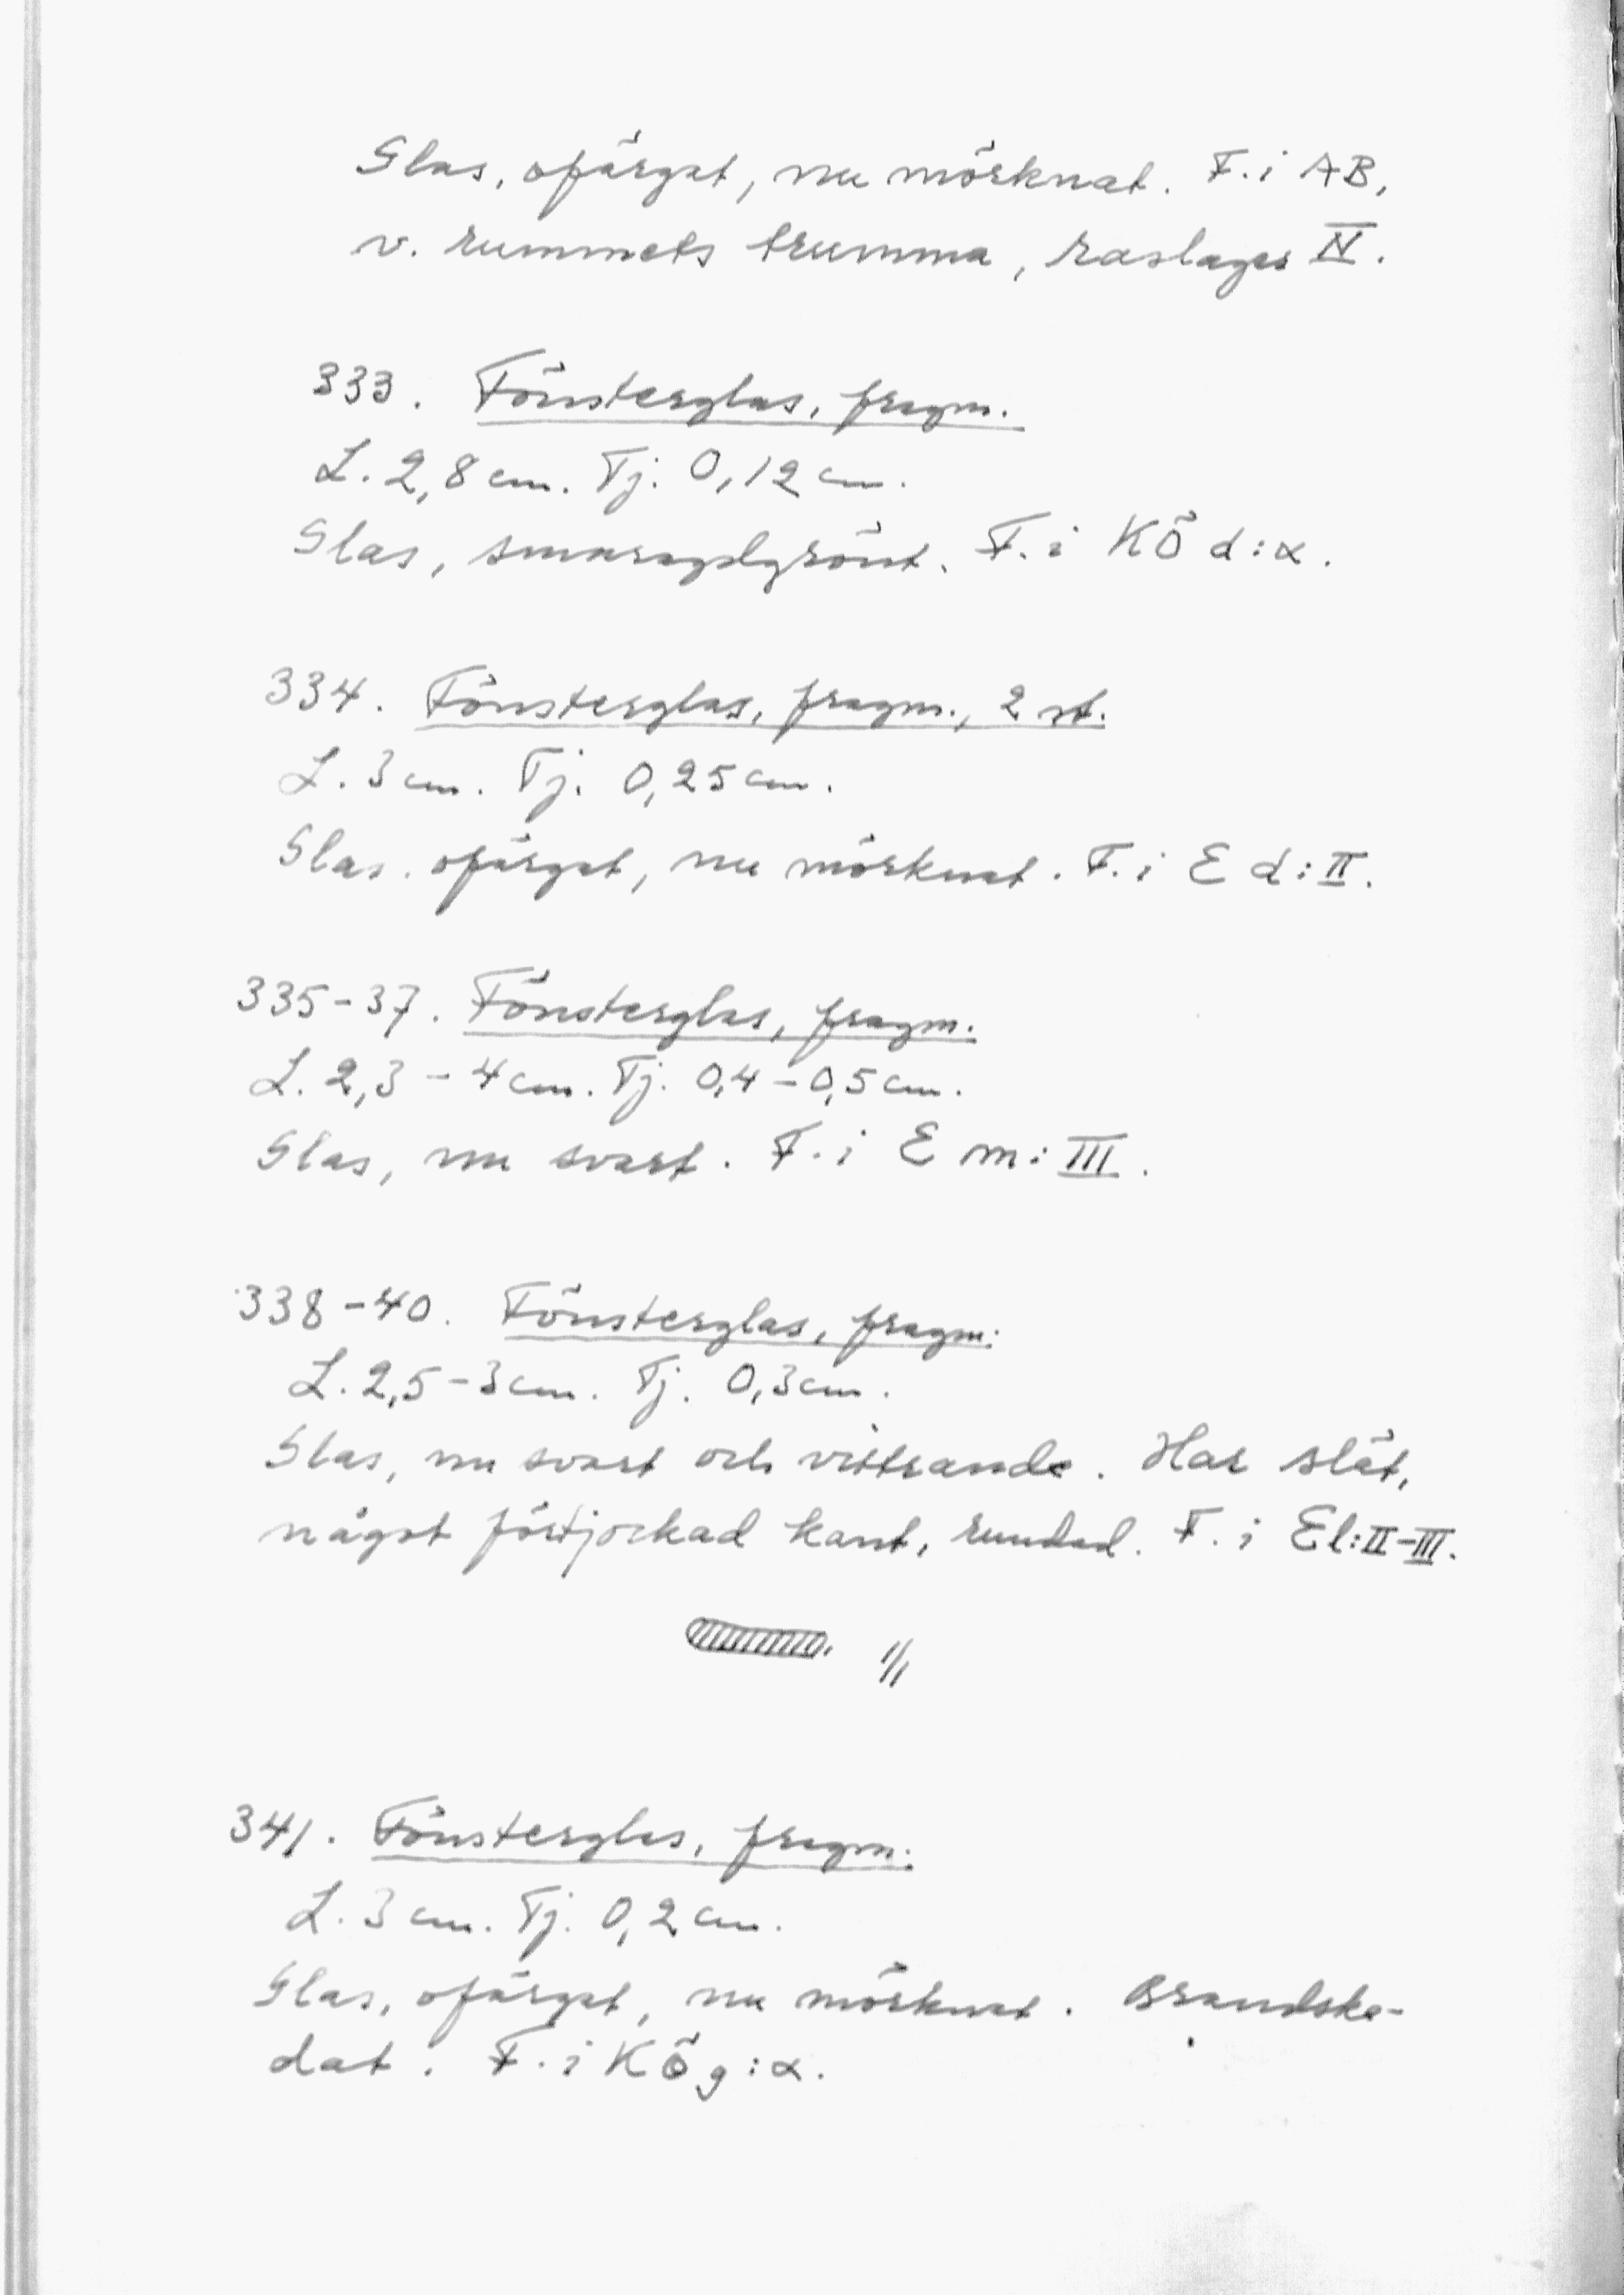 Glas, ofärgat, nu mörknat. F. i AB,
v. rummets trumma, raslager IV.
333. Fönsterglas, fragm.
L. 2,8 cm. Tj. 0,12 cm.
Glas, smaragdgrönt. F. i KÖ d:α.
334. Fönsterglas, fragm., 2 st.
L. 3 cm. Tj. 0,25 cm.
Glas, ofärgat, nu mörknat. F. i E d:II.
335-37. Fönsterglas, fragm.
L. 2,3 - 4 cm. Tj. 0,4 - 0,5 cm.
Glas, nu svart. F. i E m:III.
338-40. Fönsterglas, fragm.
L. 2,5 - 3 cm. Tj. 0,3 cm.
Glas, nu svart och vittrande. Har slät,
något förtjockad kant, rundad. F. i El:II-III.
1/1
341. Fönsterglas, fragm.
L. 3 cm. Tj. 0,2 cm.
Glas, ofärgat, nu mörknat. Brandska-
dat. F. i KÖ g:α.